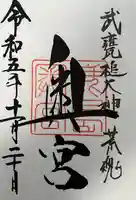 武甕槌大神 荒魂
奥宮
令和五年十一月二十日